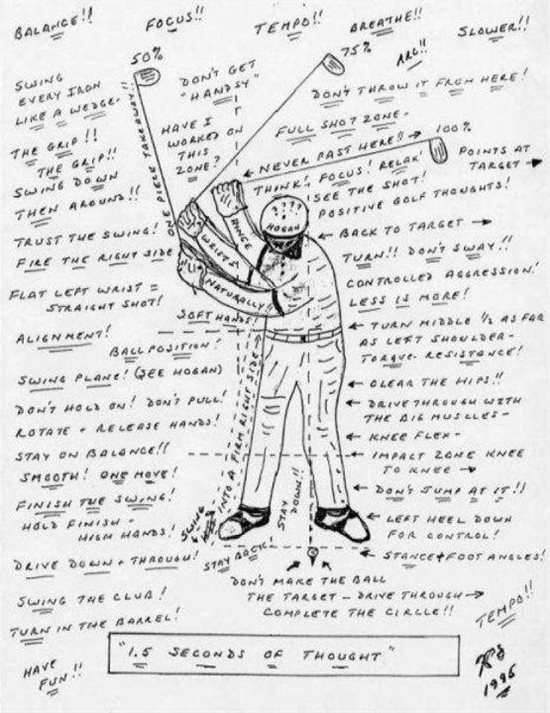 BALANCE!! FOCUS!! TEMPO!! BREATHE!! SLOWER!!
50%
75%
ARC!!
SWING
EVERY IRON
LIKE A WEDGE-
DON'T GET
"HANDSY"
DON'T THROW IT FROM HERE!
THE GRIP!!
THE GRIP!!
ONE PIECE TAKEAWAY!!
HAVE I
WORKED ON
THIS
ZONE?
FULL SHOT ZONE-
100%
NEVER PAST HERE!!
POINTS AT
TARGET
SWING DOWN
THEN AROUND!!
THINK! FOCUS! RELAX!
SEE THE SHOT!
POSITIVE GOLF THOUGHTS!
TRUST THE SWING!
FIRE THE RIGHT SIDE
HINGE
WRISTS
NATURALLY!!
SOFT HANDS
????
HOGAN
BACK TO TARGET
TURN!! DON'T SWAY!!
CONTROLLED AGGRESSION!
LESS IS MORE!
FLAT LEFT WRIST =
STRAIGHT SHOT!
ALIGNMENT!
BALL POSITION!
TURN MIDDLE 1/2 AS FAR
AS LEFT SHOULDER-
TORQUE-RESISTANCE!
SWING PLANE! (SEE HOGAN)
CLEAR THE HIPS!!
DON'T HOLD ON! DON'T PULL!
ROTATE + RELEASE HANDS!
DRIVE THROUGH WITH
THE BIG MUSCLES-
KNEE FLEX-
STAY ON BALANCE!!
IMPACT ZONE KNEE
TO KNEE
SMOOTH! ONE MOVE!
DON'T JUMP AT IT!!
FINISH THE SWING!
HOLD FINISH -
HIGH HANDS!
INTO A FIRM RIGHT SIDE
STAY
DOWN!!
LEFT HEEL DOWN
FOR CONTROL!
DRIVE DOWN + THROUGH!
STAY BACK
STANCE + FOOT ANGLES!
DON'T MAKE THE BALL
THE TARGET - DRIVE THROUGH
COMPLETE THE CIRCLE!!
SWING THE CLUB!
TURN IN THE BARREL!
TEMPO!!
"1.5 SECONDS OF THOUGHT"
HAVE
FUN!!